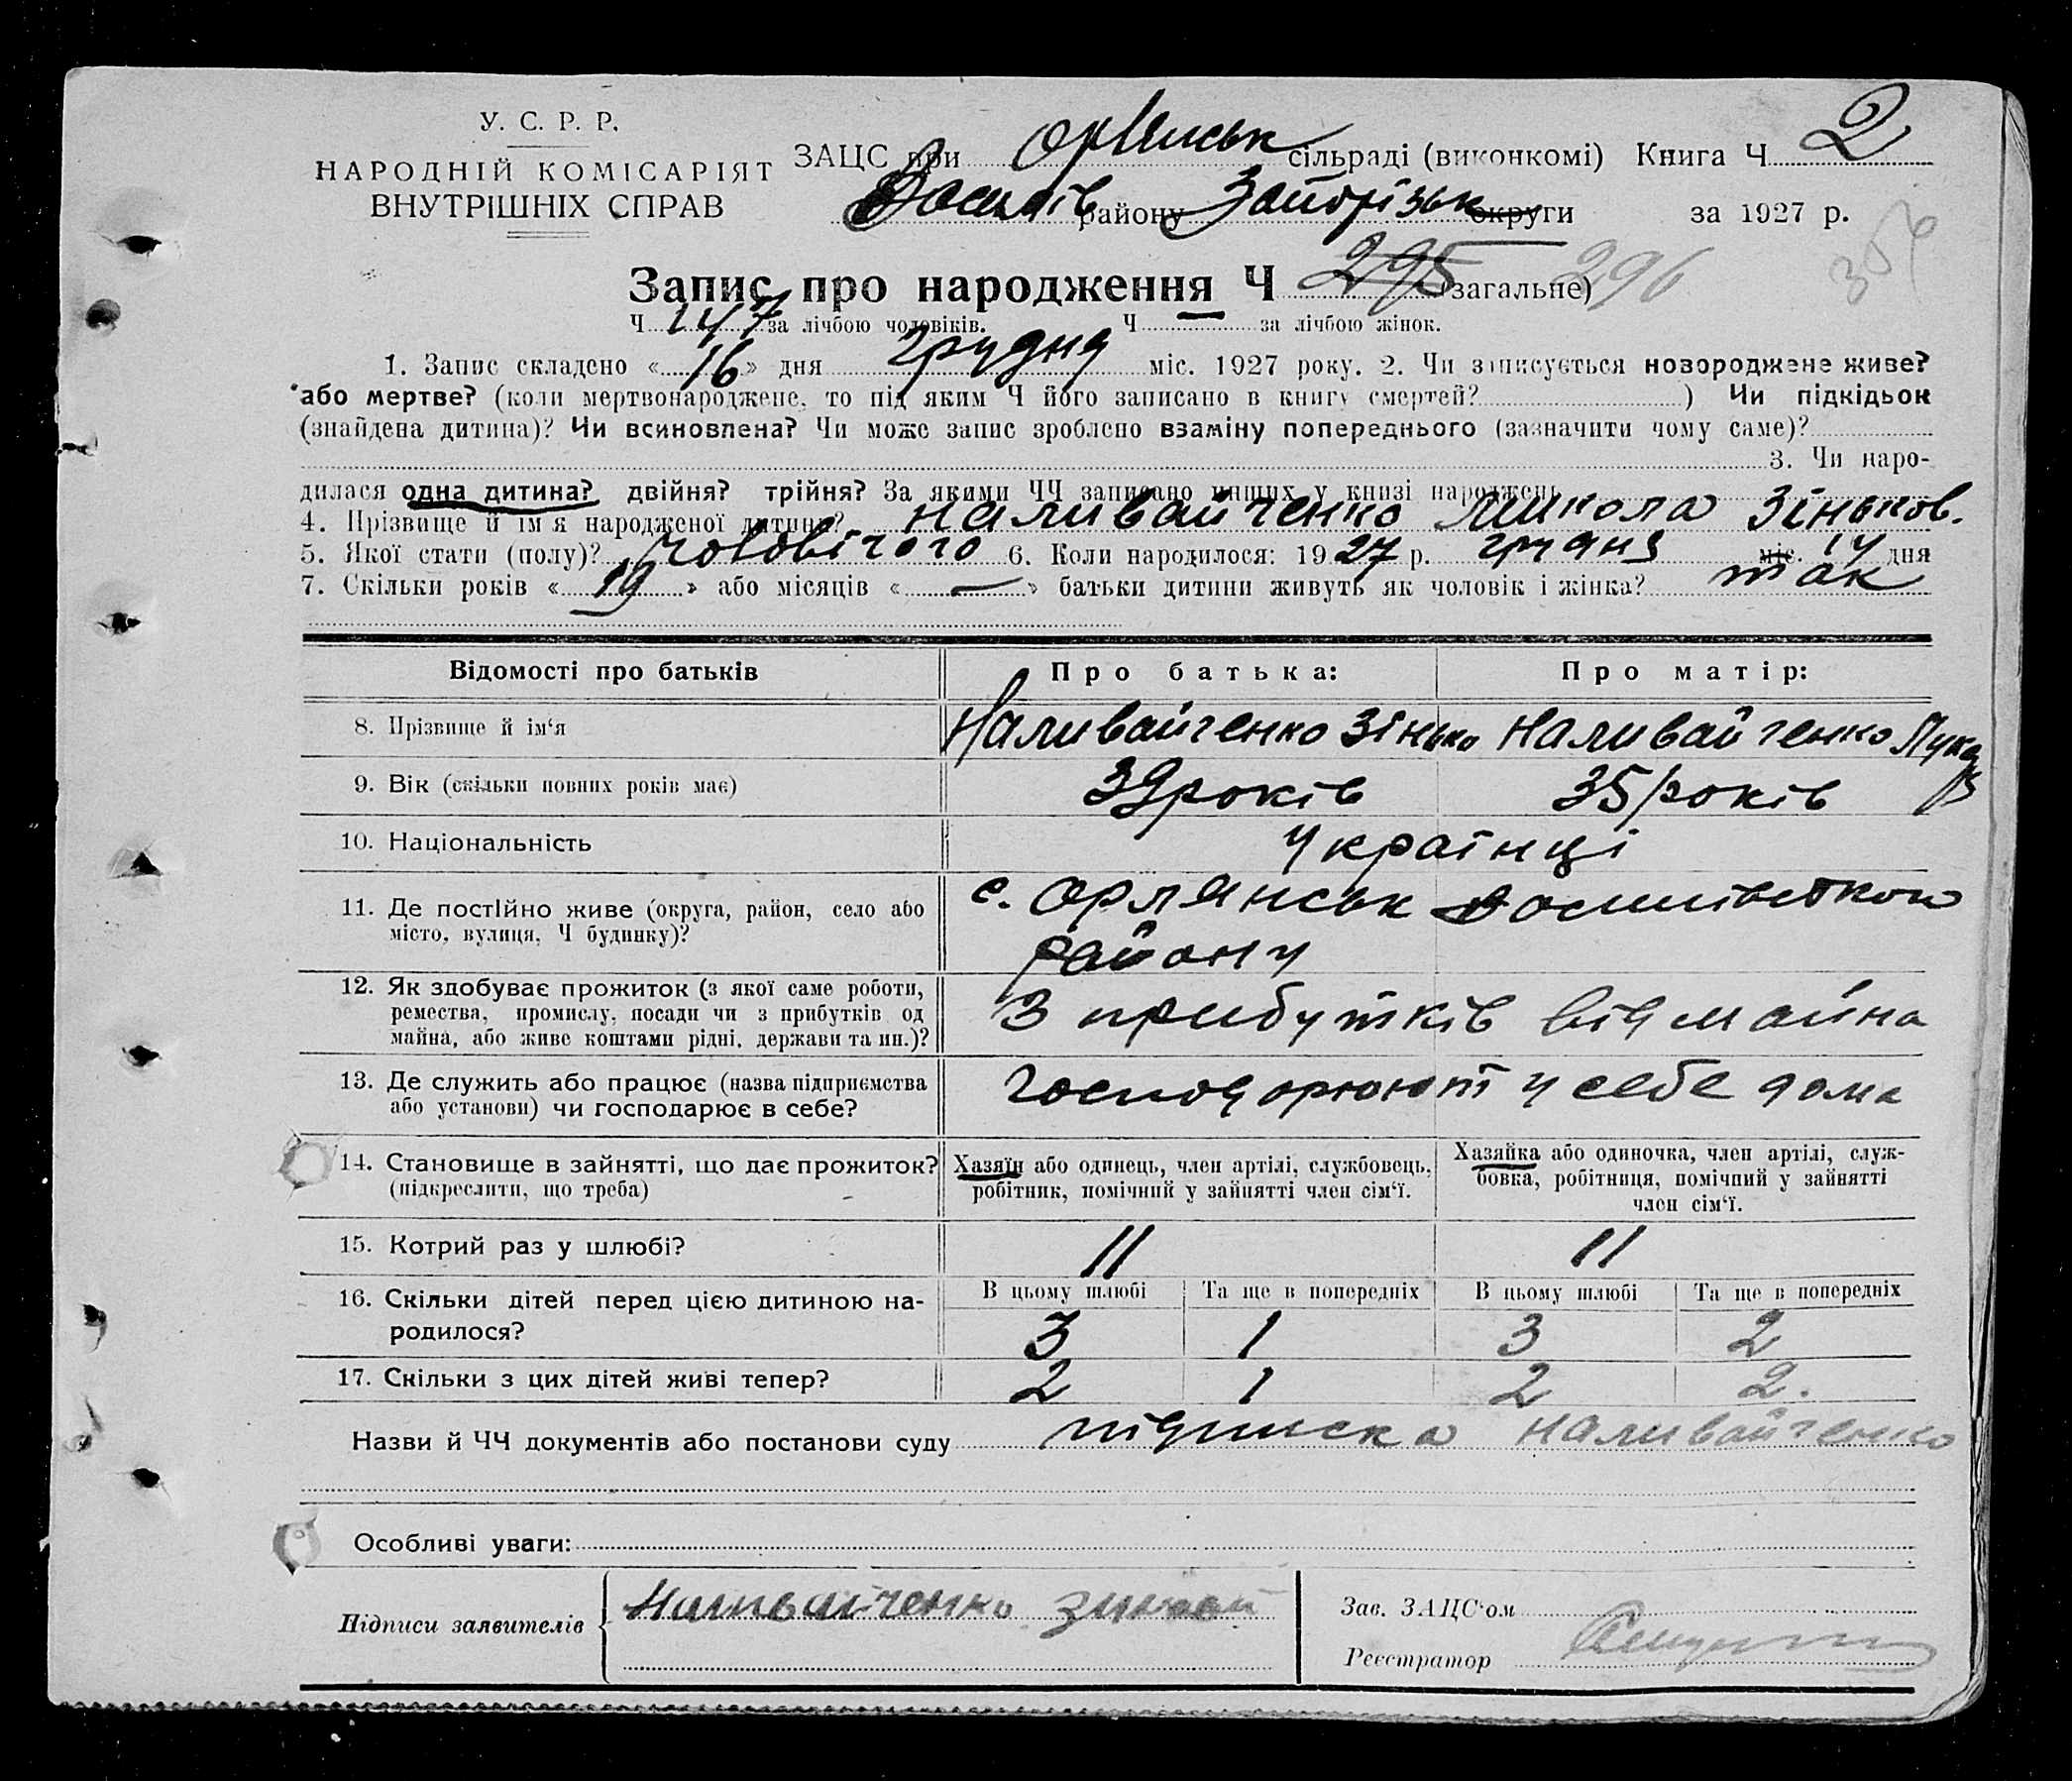 У. С. Р. Р.
НАРОДНІЙ КОМІСАРІЯТ
ВНУТРІШНІХ СПРАВ
ЗАЦС при Орлянськ сільраді (виконкомі) Книга Ч 2
Василів району Запорізьк округи за 1927 р.
Запис про народження Ч 295 (загальне) 296
Ч 147 за лічбою чоловіків. Ч — за лічбою жінок.
1. Запис складено « 16 » дня грудня міс. 1927 року. 2. Чи записується новороджене живе?
або мертве? (коли мертвонароджене, то під яким Ч його записано в книгу смертей? ) Чи підкідьок
(знайдена дитина)? Чи всиновлена? Чи може запис зроблено взаміну попереднього (зазначити чому саме)?
3. Чи наро-
дилася одна дитина? двійня? трійня? За якими ЧЧ записано инших у книзі народжень
4. Прізвище й ім'я народженої дитини? Наливайченко Микола Зіньков.
5. Якої стати (полу)? чоловічого 6. Коли народилося: 1927 р. грудня міс. 14 дня
7. Скільки років « 19 » або місяців « — » батьки дитини живуть як чоловік і жінка? так
Відомості про батьків Про батька: Про матір:
8. Прізвище й ім'я Наливайченко Зінько Наливайченко
9. Вік (скільки повних років має) 39 років 35 років
10. Національність Українці
11. Де постійно живе (округа, район, село або
місто, вулиця, Ч будинку)?
с. Орлянськ Василівського
району
12. Як здобуває прожиток (з якої саме роботи,
ремества, промислу, посади чи з прибутків од
майна, або живе коштами рідні, держави та ин.)?
З прибутків від майна
13. Де служить або працює (назва підприємства
або установи) чи господарює в себе?
Господорюют у себе дома
14. Становище в зайнятті, що дає прожиток?
(підкреслити, що треба)
Хазяїн або одинець, член артілі, службовець,
робітник, помічний у зайнятті член сім'ї.
Хазяйка або одиночка, член артілі, служ-
бовка, робітниця, помічний у зайнятті
член сім'ї.
15. Котрий раз у шлюбі? II II
16. Скільки дітей перед цією дитиною на-
родилося?
В цьому шлюбі Та ще в попередніх В цьому шлюбі Та ще в попередніх
3 1 3 2
17. Скільки з цих дітей живі тепер? 2 1 2 2.
Назви й ЧЧ документів або постанови суду підписка Наливайченко
Особливі уваги:
Підписи заявителів Наливайченко
Зав. ЗАЦС'ом
Реєстратор